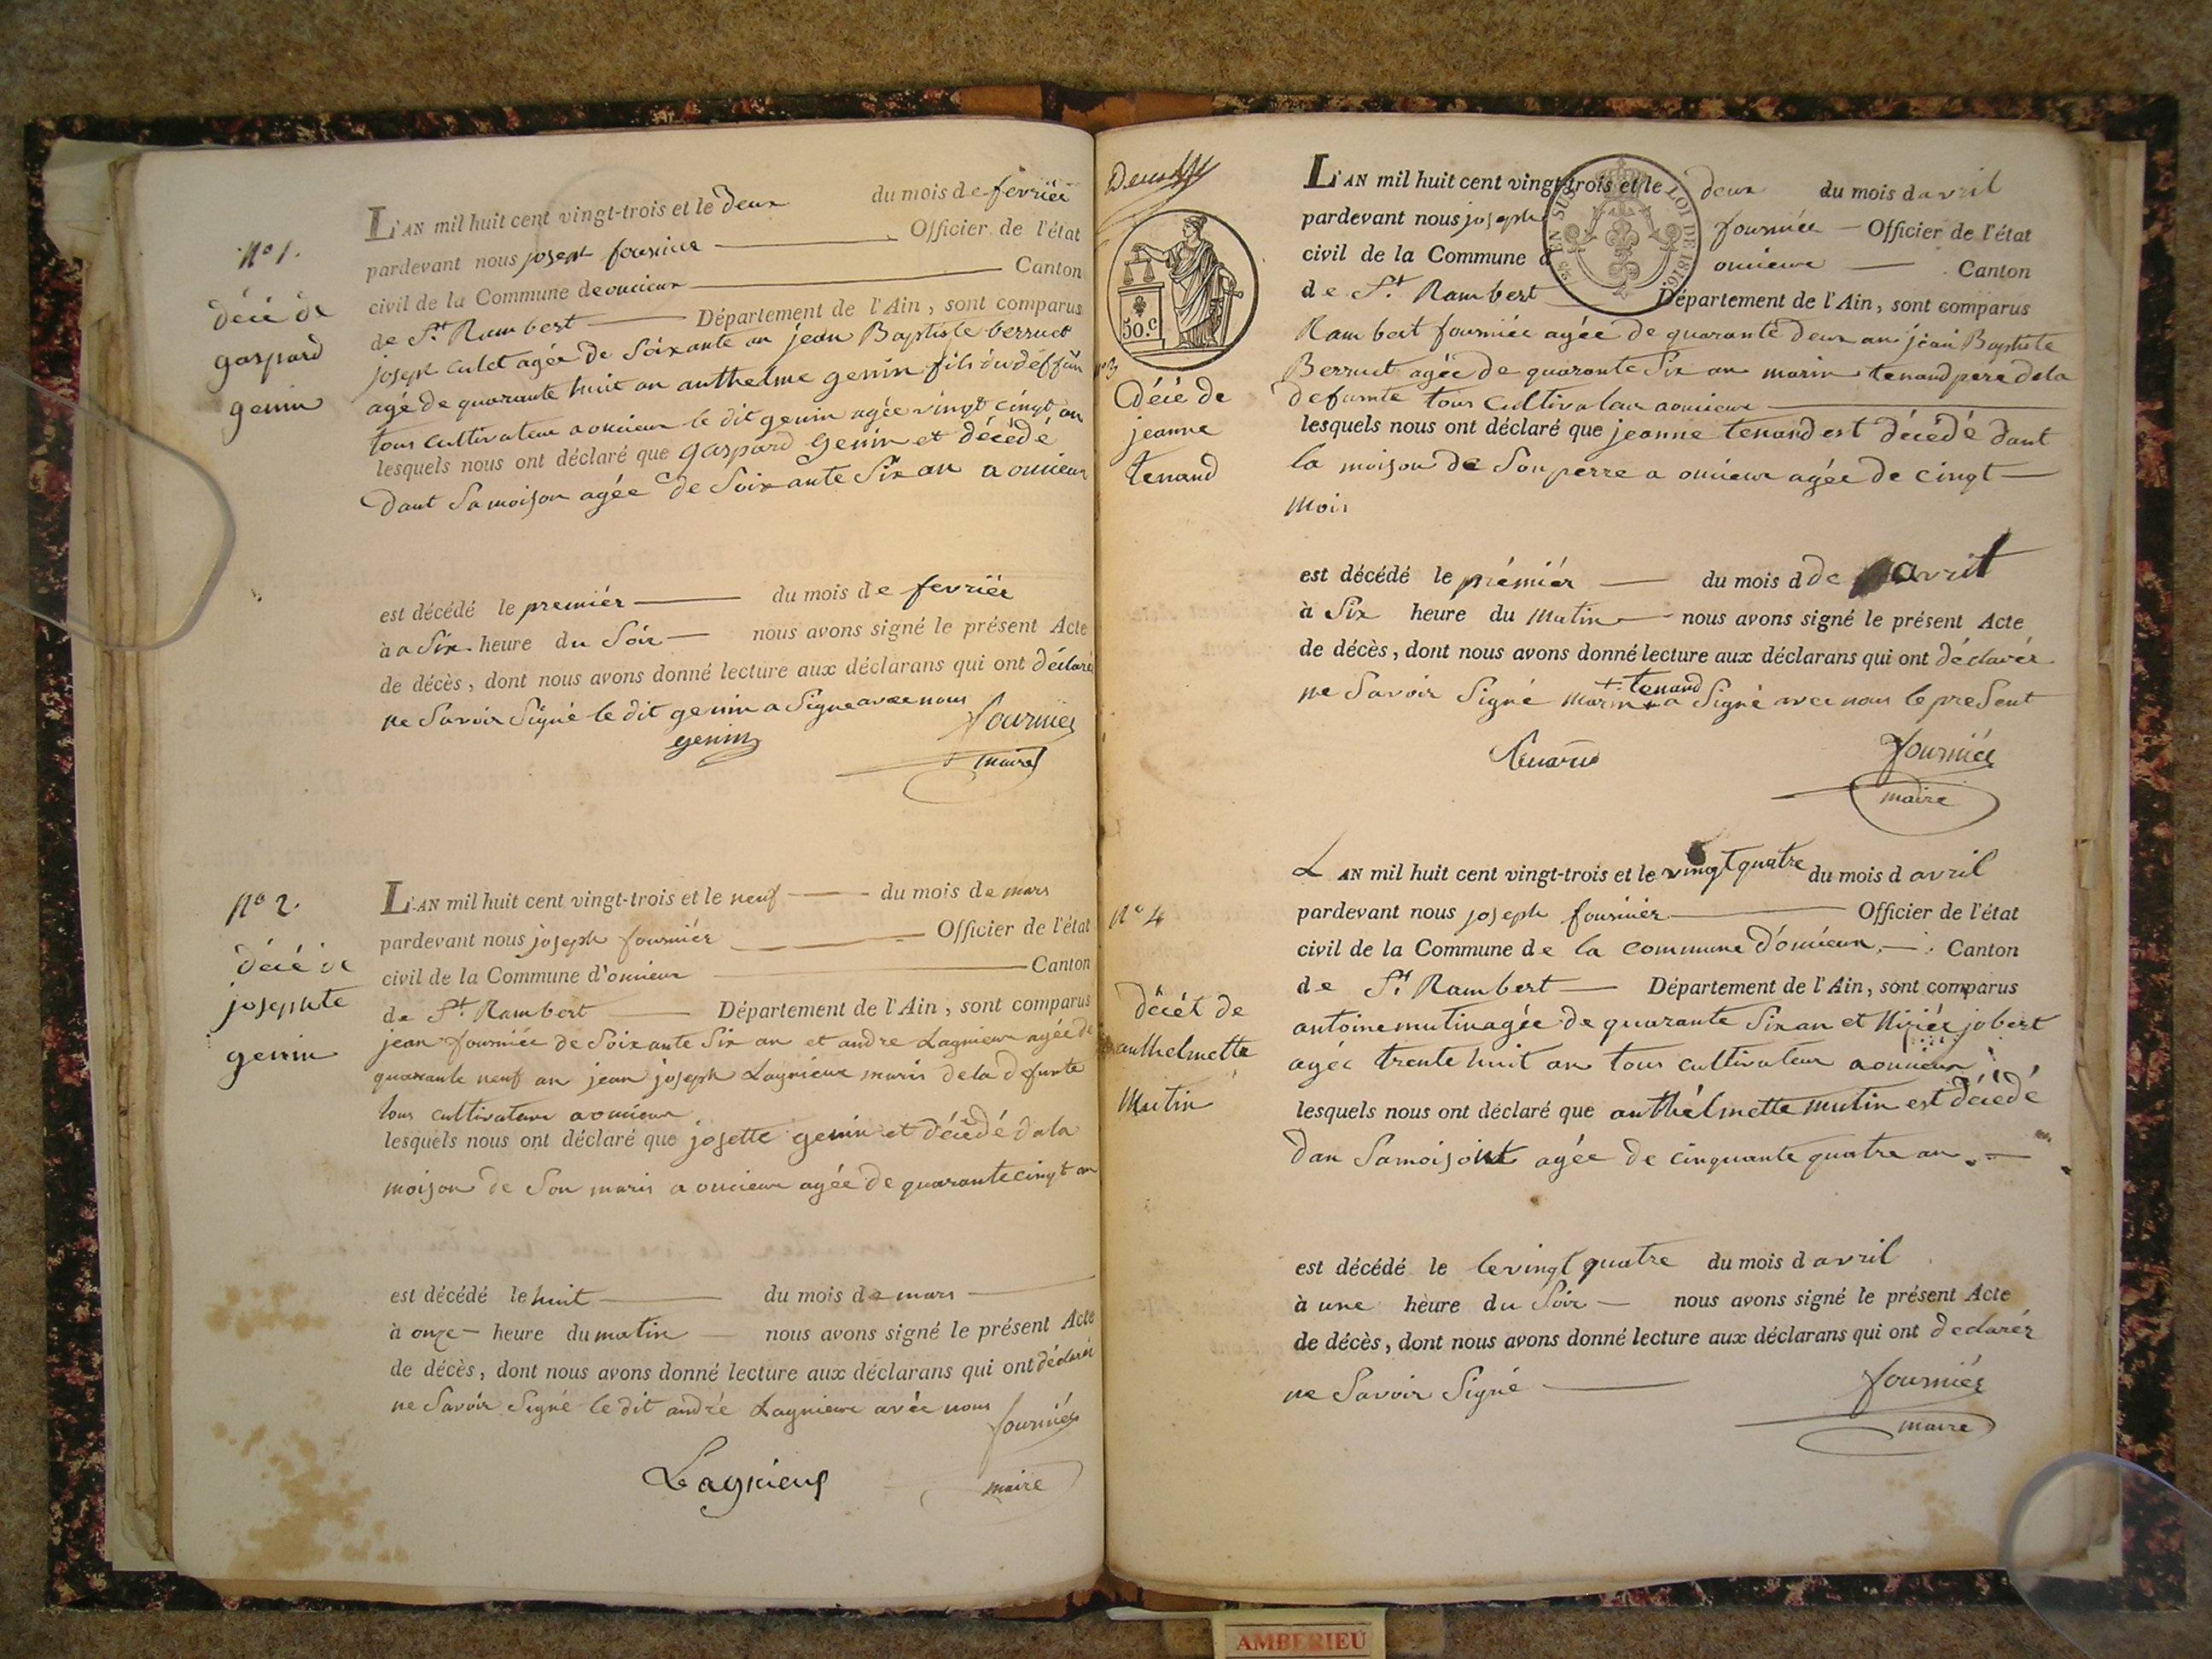 N° 1.
décé de
gaspard
genin
L'AN mil huit cent vingt-trois et le deux du mois de fevriée
pardevant nous joseph fournier Officier de l'état
civil de la Commune de oncieux Canton
de St. Rambert Département de l'Ain, sont comparus
joseph culet agée de Soixante an jean Baptiste berruet
agé de quarante huit an anthelme genin fils du déffun
tous cultivateur a oncieux le dit genin agée vingt cingt an
lesquels nous ont déclaré que gaspard genin et décédé
dant Sa moison agée de Soixante Six an a oncieux
est décédé le premiér du mois de fevriée
à a Six heure du Soir nous avons signé le présent Acte
de décès, dont nous avons donné lecture aux déclarans qui ont déclaré
ne Savoir Signé le dit genin a Signe avec nous
genin fourniér
maire
N° 2.
décé de
josephte
genin
L'AN mil huit cent vingt-trois et le neuf du mois de mars
pardevant nous joseph fourniér Officier de l'état
civil de la Commune d'oncieux Canton
de St. Rambert Département de l'Ain, sont comparus
jean fourniée de Soixante Six an et andre Lagnieux agée de
quarante neuf an jean joseph Lagnieux maris de la defunte
tous cultivateur a oncieux
lesquels nous ont déclaré que josette genin et décédé dala
moison de Son maris a oncieux agée de quarante cingt an
est décédé le huit du mois de mars
à onze heure du matin nous avons signé le présent Acte
de décès, dont nous avons donné lecture aux déclarans qui ont déclaré
ne Savoir Signé le dit andré Lagnieux avéc nous
fourniér
Lagnieux maire
50.c
EN SUS LOI DE 1816
n° 3
Décé de
jeanne
tenand
L'AN mil huit cent vingt-trois et le deux du mois d avril
pardevant nous joseph fourniée Officier de l'état
civil de la Commune d oncieux Canton
de St. Rambert Département de l'Ain, sont comparus
Rambert fourniée agée de quarante deux an jean Baptiste
Berruet agée de quarante Six an marin tenand pere dela
defunte tous Cultivateur a oncieux
lesquels nous ont déclaré que jeanne tenand est décédé dant
la moison de Son perre a oncieux agée de cingt
mois
est décédé le prémiér du mois d de avril
à Six heure du Matin nous avons signé le présent Acte
de décès, dont nous avons donné lecture aux déclarans qui ont déclarér
ne Savoir Signé marin tenand a Signé avec nous le present
fourniée
maire
N° 4
décét de
anthelmette
Mutin
L'AN mil huit cent vingt-trois et le vingt quatre du mois d avril
pardevant nous joseph fourniér Officier de l'état
civil de la Commune de la commune d'oncieux Canton
de St. Rambert Département de l'Ain, sont comparus
antoine mutin agée de quarante Six an et Niziér jobert
agée trente huit an tous cultivateur a oncieux
lesquels nous ont déclaré que anthélmette mutin est décédé
dan Sa moisont agée de cinquante quatre an
est décédé le le vingt quatre du mois d avril
à une heure du Soir nous avons signé le présent Acte
de décès, dont nous avons donné lecture aux déclarans qui ont declarér
ne Savoir Signé fourniér
maire
AMBERIEU